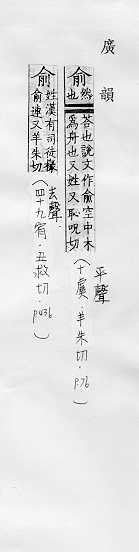 廣韻
俞 然也荅也說文作俞空中木
為舟也又姓又恥呪切
平聲
(十虞.羊朱切.p.76)
俞 姓漢有司徒掾
俞連又羊朱切
去聲.
(四十九宥.丑救切.p.436)